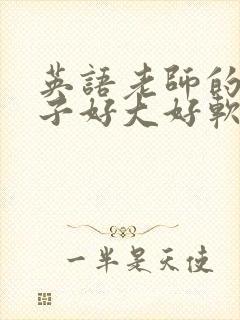 英語老師的
子好大好軟
一半是天使